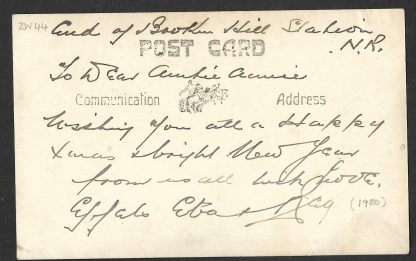 ZBV44
End of Brooken Hill Station
N.R.
POST CARD
"To Dear Auntie Annie
Communication Address
Wishing you all a Happy
Xmas & bright New Year
from us all with love.
Eva & Reg (1920)